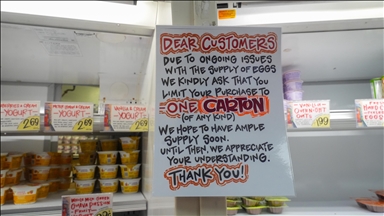 DEAR CUSTOMERS
DUE TO ONGOING ISSUES
WITH THE SUPPLY OF EGGS
WE KINDLY ASK THAT YOU
LIMIT YOUR PURCHASE TO
ONE CARTON
(OF ANY KIND)
WE HOPE TO HAVE AMPLE
SUPPLY SOON.
UNTIL THEN, WE APPRECIATE
YOUR UNDERSTANDING.
THANK YOU!
YOGURT
2.69
YOGURT
YOGURT
2.69